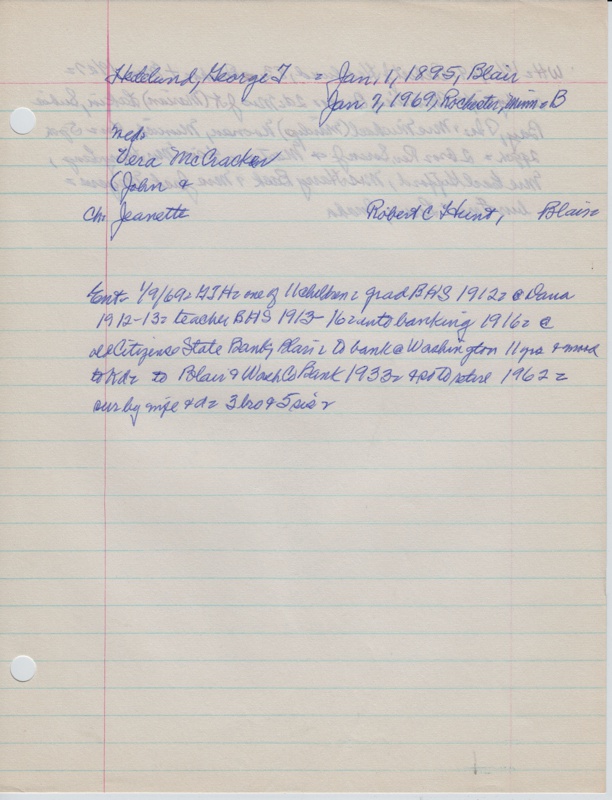 Hedelund, George T = Jan, 1, 1895, Blair
Jan 7, 1969, Rochester, Minn = B
Vera McCracken
(John &
Ch: Jeanette Robert C Hunt, Blair=
Ent= 1/9/69= GTH= one of 11 children= grad BHS 1912= @ Dana
1912-13= teacher BHS 1913-16= into banking 1916= @
Citizens State Bank, Blair= to bank @ Washington 11 yrs &
to Blair & Wash Co Bank 1933= & so to 1962=
sur by wife & d= 3 bro & 5 sis=